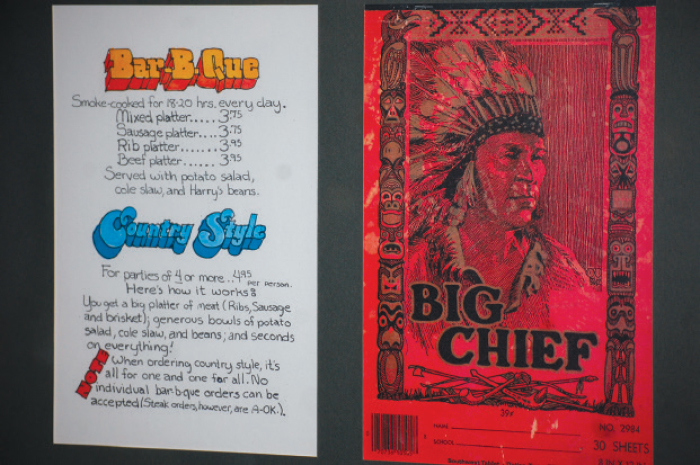 Bar-B-Que
Smoke-cooked for 18-20 hrs. every day.
Mixed platter...... 3.75
Sausage platter.... 3.75
Rib platter....... 3.95
Beef platter....... 3.95
Served with potato salad,
cole slaw, and Harry's beans.
Country Style
For parties of 4 or more.. 4.95 per person.
Here's how it works:
You get a big platter of meat (Ribs, Sausage
and brisket); generous bowls of potato
salad, cole slaw, and beans; and seconds
on everything!
NOTE
When ordering country style, it's
all for one and one for all. No
individual bar-b-que orders can be
accepted (Steak orders, however, are A-OK.).
BIG
CHIEF
39¢
NAME
SCHOOL
NO. 2984
30 SHEETS